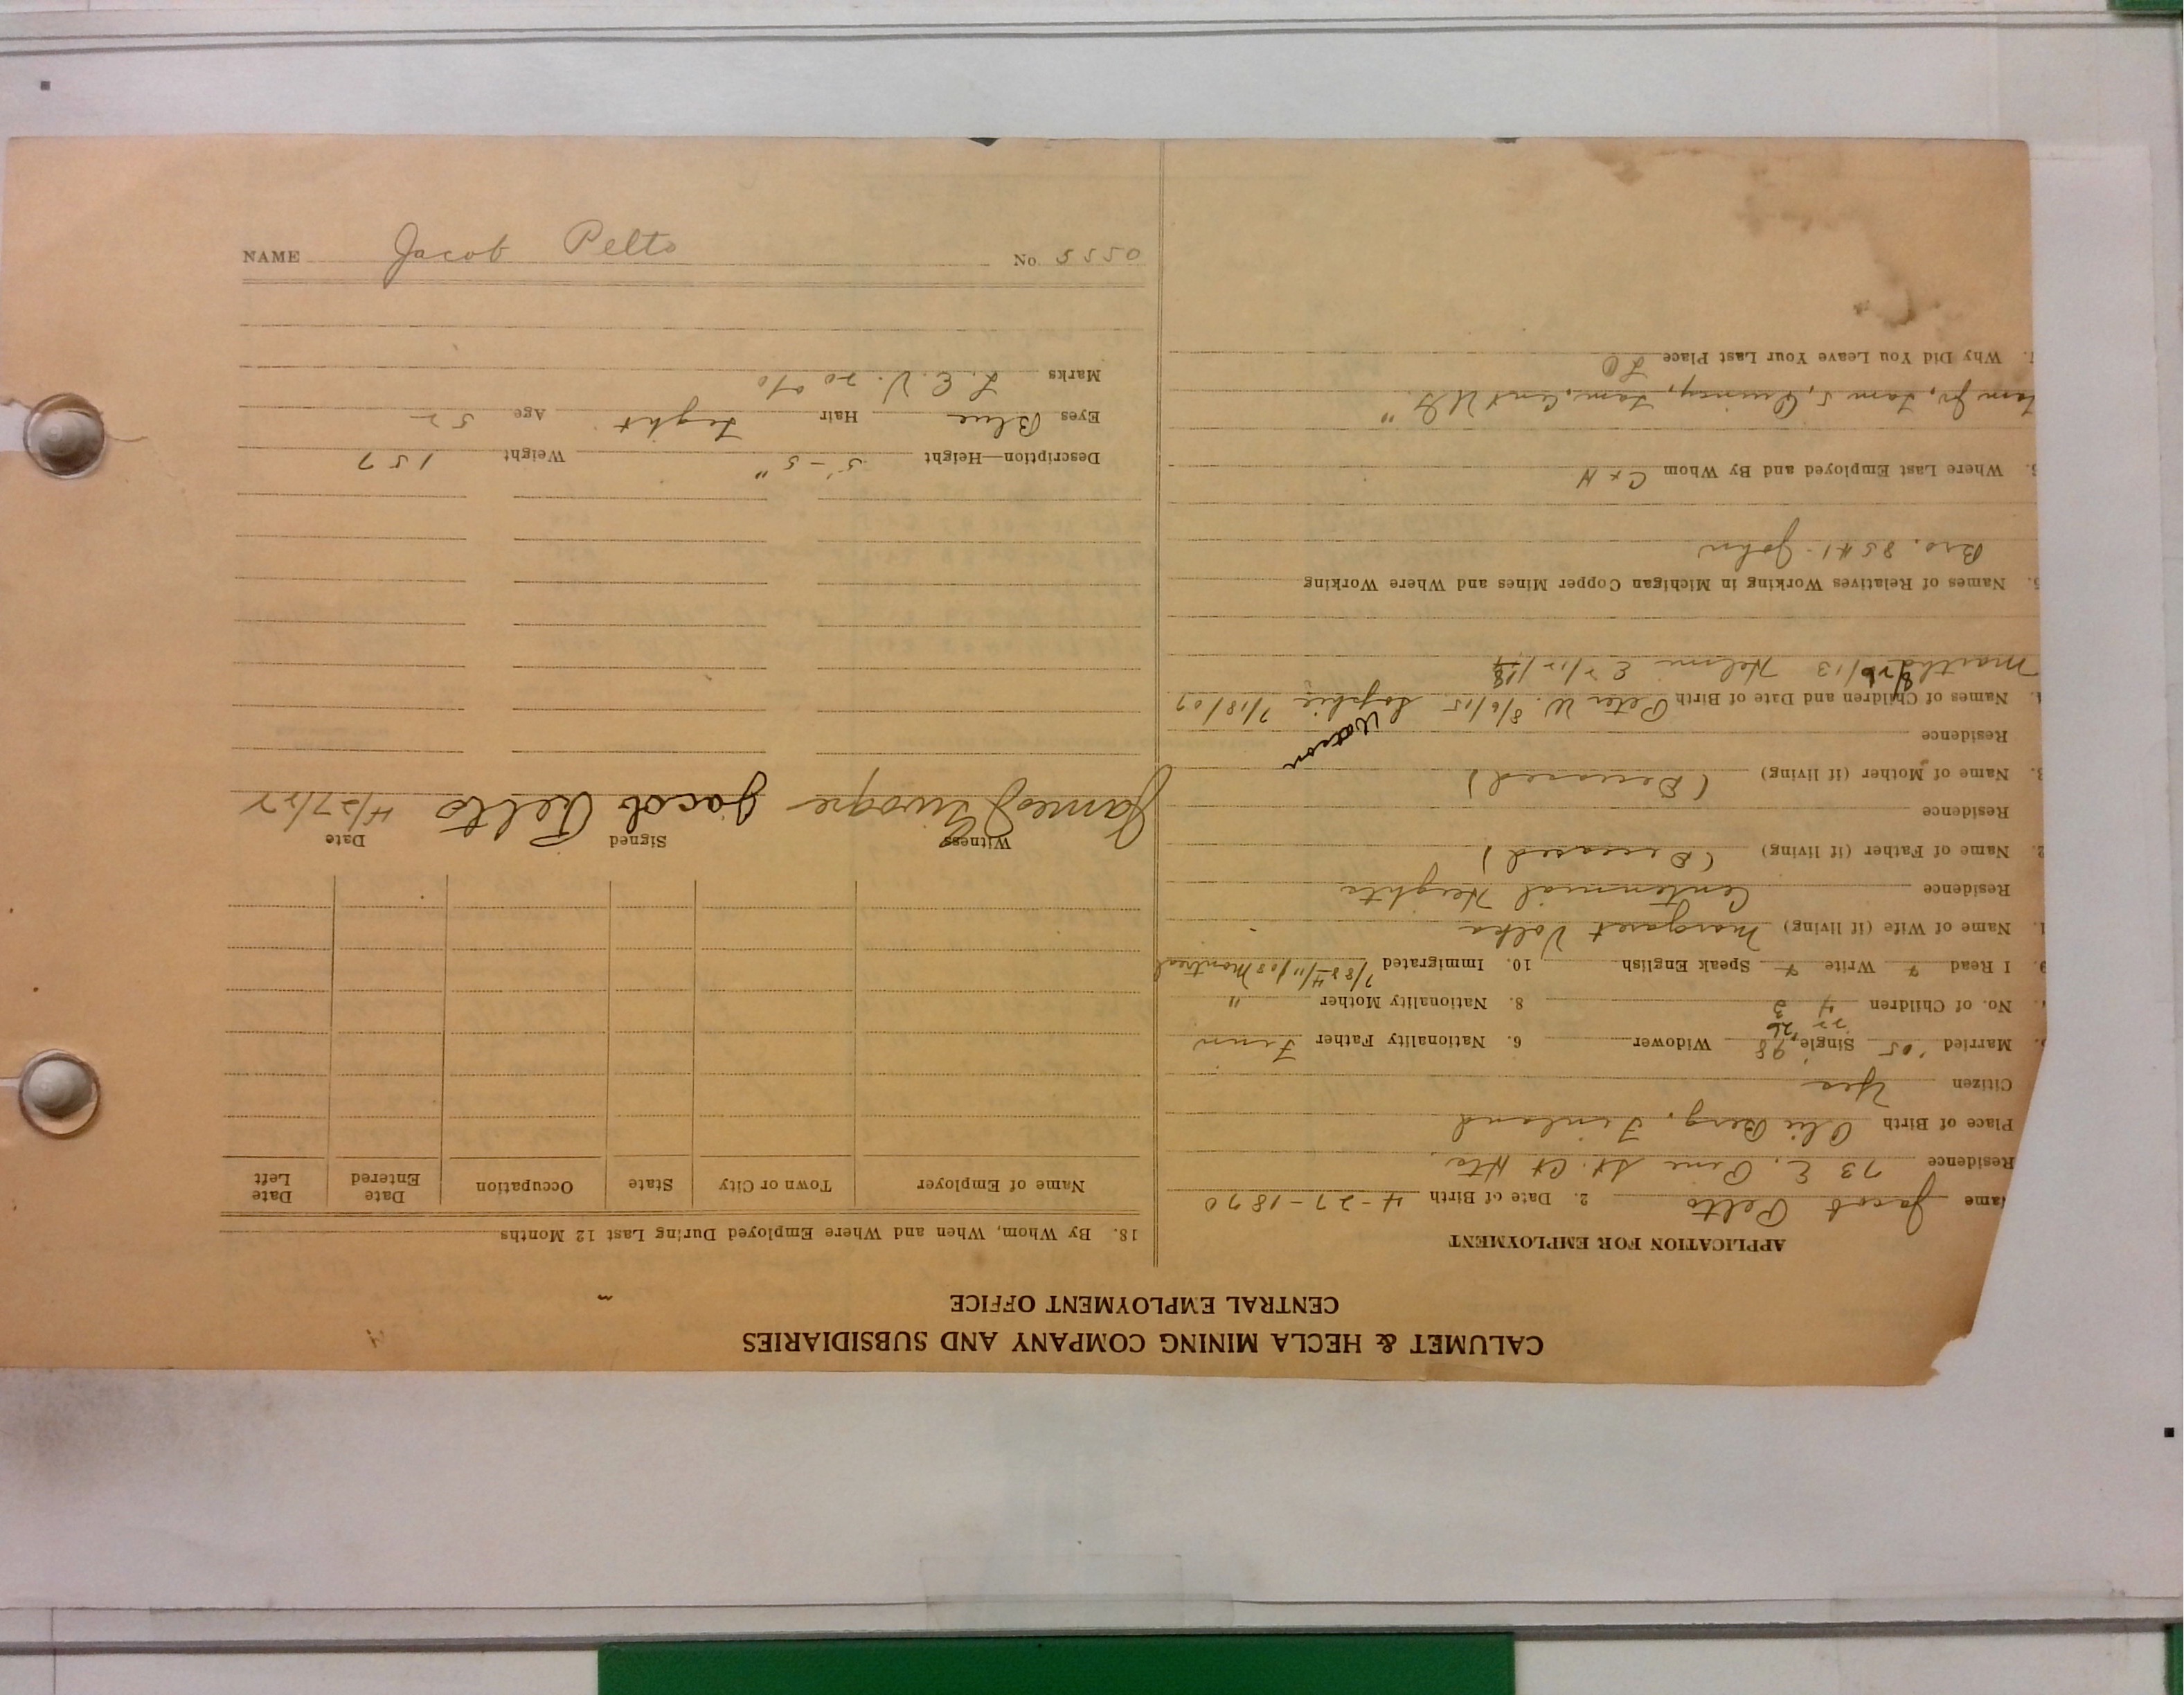 CALUMET & HECLA MINING COMPANY AND SUBSIDIARIES
CENTRAL EMPLOYMENT OFFICE
APPLICATION FOR EMPLOYMENT
ame Jacob Pelto 2. Date of Birth 4-27-1870
Residence 73 E. Pine St. Ct Hts.
Place of Birth Berg, Finland
Citizen Yes
Married '05 Single Widower 6. Nationality Father Finn
No. of Children 4 8. Nationality Mother "
9. I Read Write Speak English 10. Immigrated Montreal
1. Name of Wife (if living) Margaret Volka
Residence Centennial Heights
2. Name of Father (if living) (Deceased)
Residence
3. Name of Mother (if living) (Deceased)
Residence
4. Names of Children and Date of Birth Peter W. 8/6/15 Sophie 7/18/07
Watson
Martha Helmi E
5. Names of Relatives Working in Michigan Copper Mines and Where Working
Bro. John
Where Last Employed and By Whom C & H
Tam Jr, Tam 5, Quincy, Tam,
7. Why Did You Leave Your Last Place
18. By Whom, When and Where Employed During Last 12 Months
Name of Employer Town or City State Occupation Date Entered Date Left
Witness Signed Date
James Jacob Pelto 4/27/22
Description—Height 5'-5" Weight 157
Eyes Blue Hair Light Age 52
Marks L. E. V. 20%
NAME Jacob Pelto No. 5550